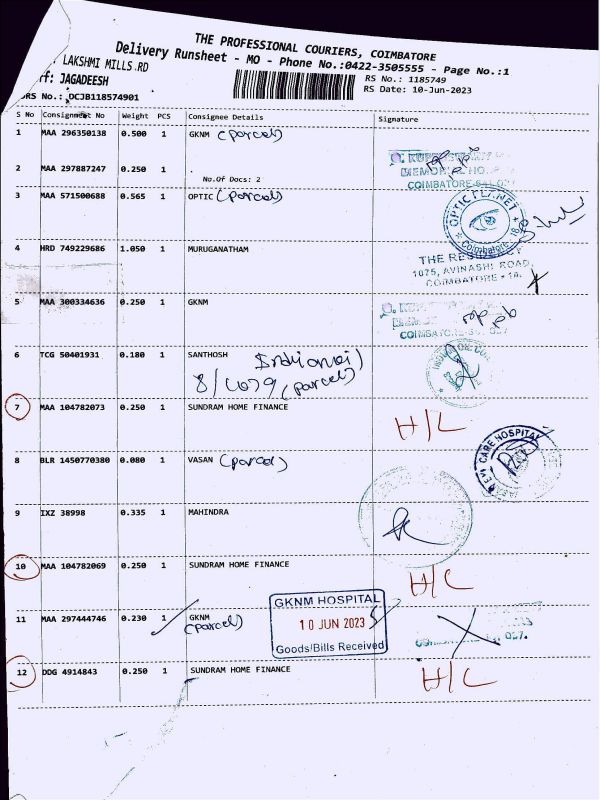 THE PROFESSIONAL COURIERS, COIMBATORE
Delivery Runsheet - MO - Phone No.:0422-3505555 - Page No.:1
LAKSHMI MILLS.RD
RS No.: 1185749
f: JAGADEESH
RS Date: 10-Jun-2023
RS No.: DCJB118574901
S No Consignment No Weight PCS Consignee Details Signature
1 MAA 296350138 0.500 1 GKNM (parcel)
2 MAA 297887247 0.250 1
No.Of Docs: 2
MEMORIAL HO
COIMBATORE
3 MAA 571500688 0.565 1 OPTIC (parcel)
OPTIC PLANET
Coimbatore
4 HRD 749229686 1.050 1 MURUGANATHAM
1075, AVINASHI ROAD,
COIMBATORE - 18.
5 MAA 300334636 0.250 1 GKNM
6 TCG 50401931 0.180 1 SANTHOSH
(parcel)
7 MAA 104782073 0.250 1 SUNDRAM HOME FINANCE
H/L
8 BLR 1450770380 0.080 1 VASAN (parcel)
CARE HOSPITAL
9 IXZ 38998 0.335 1 MAHINDRA
10 MAA 104782069 0.250 1 SUNDRAM HOME FINANCE
H/C
11 MAA 297444746 0.230 1 GKNM
(parcel)
GKNM HOSPITAL
10 JUN 2023
Goods/Bills Received
12 DDG 4914843 0.250 1 SUNDRAM HOME FINANCE
H/C